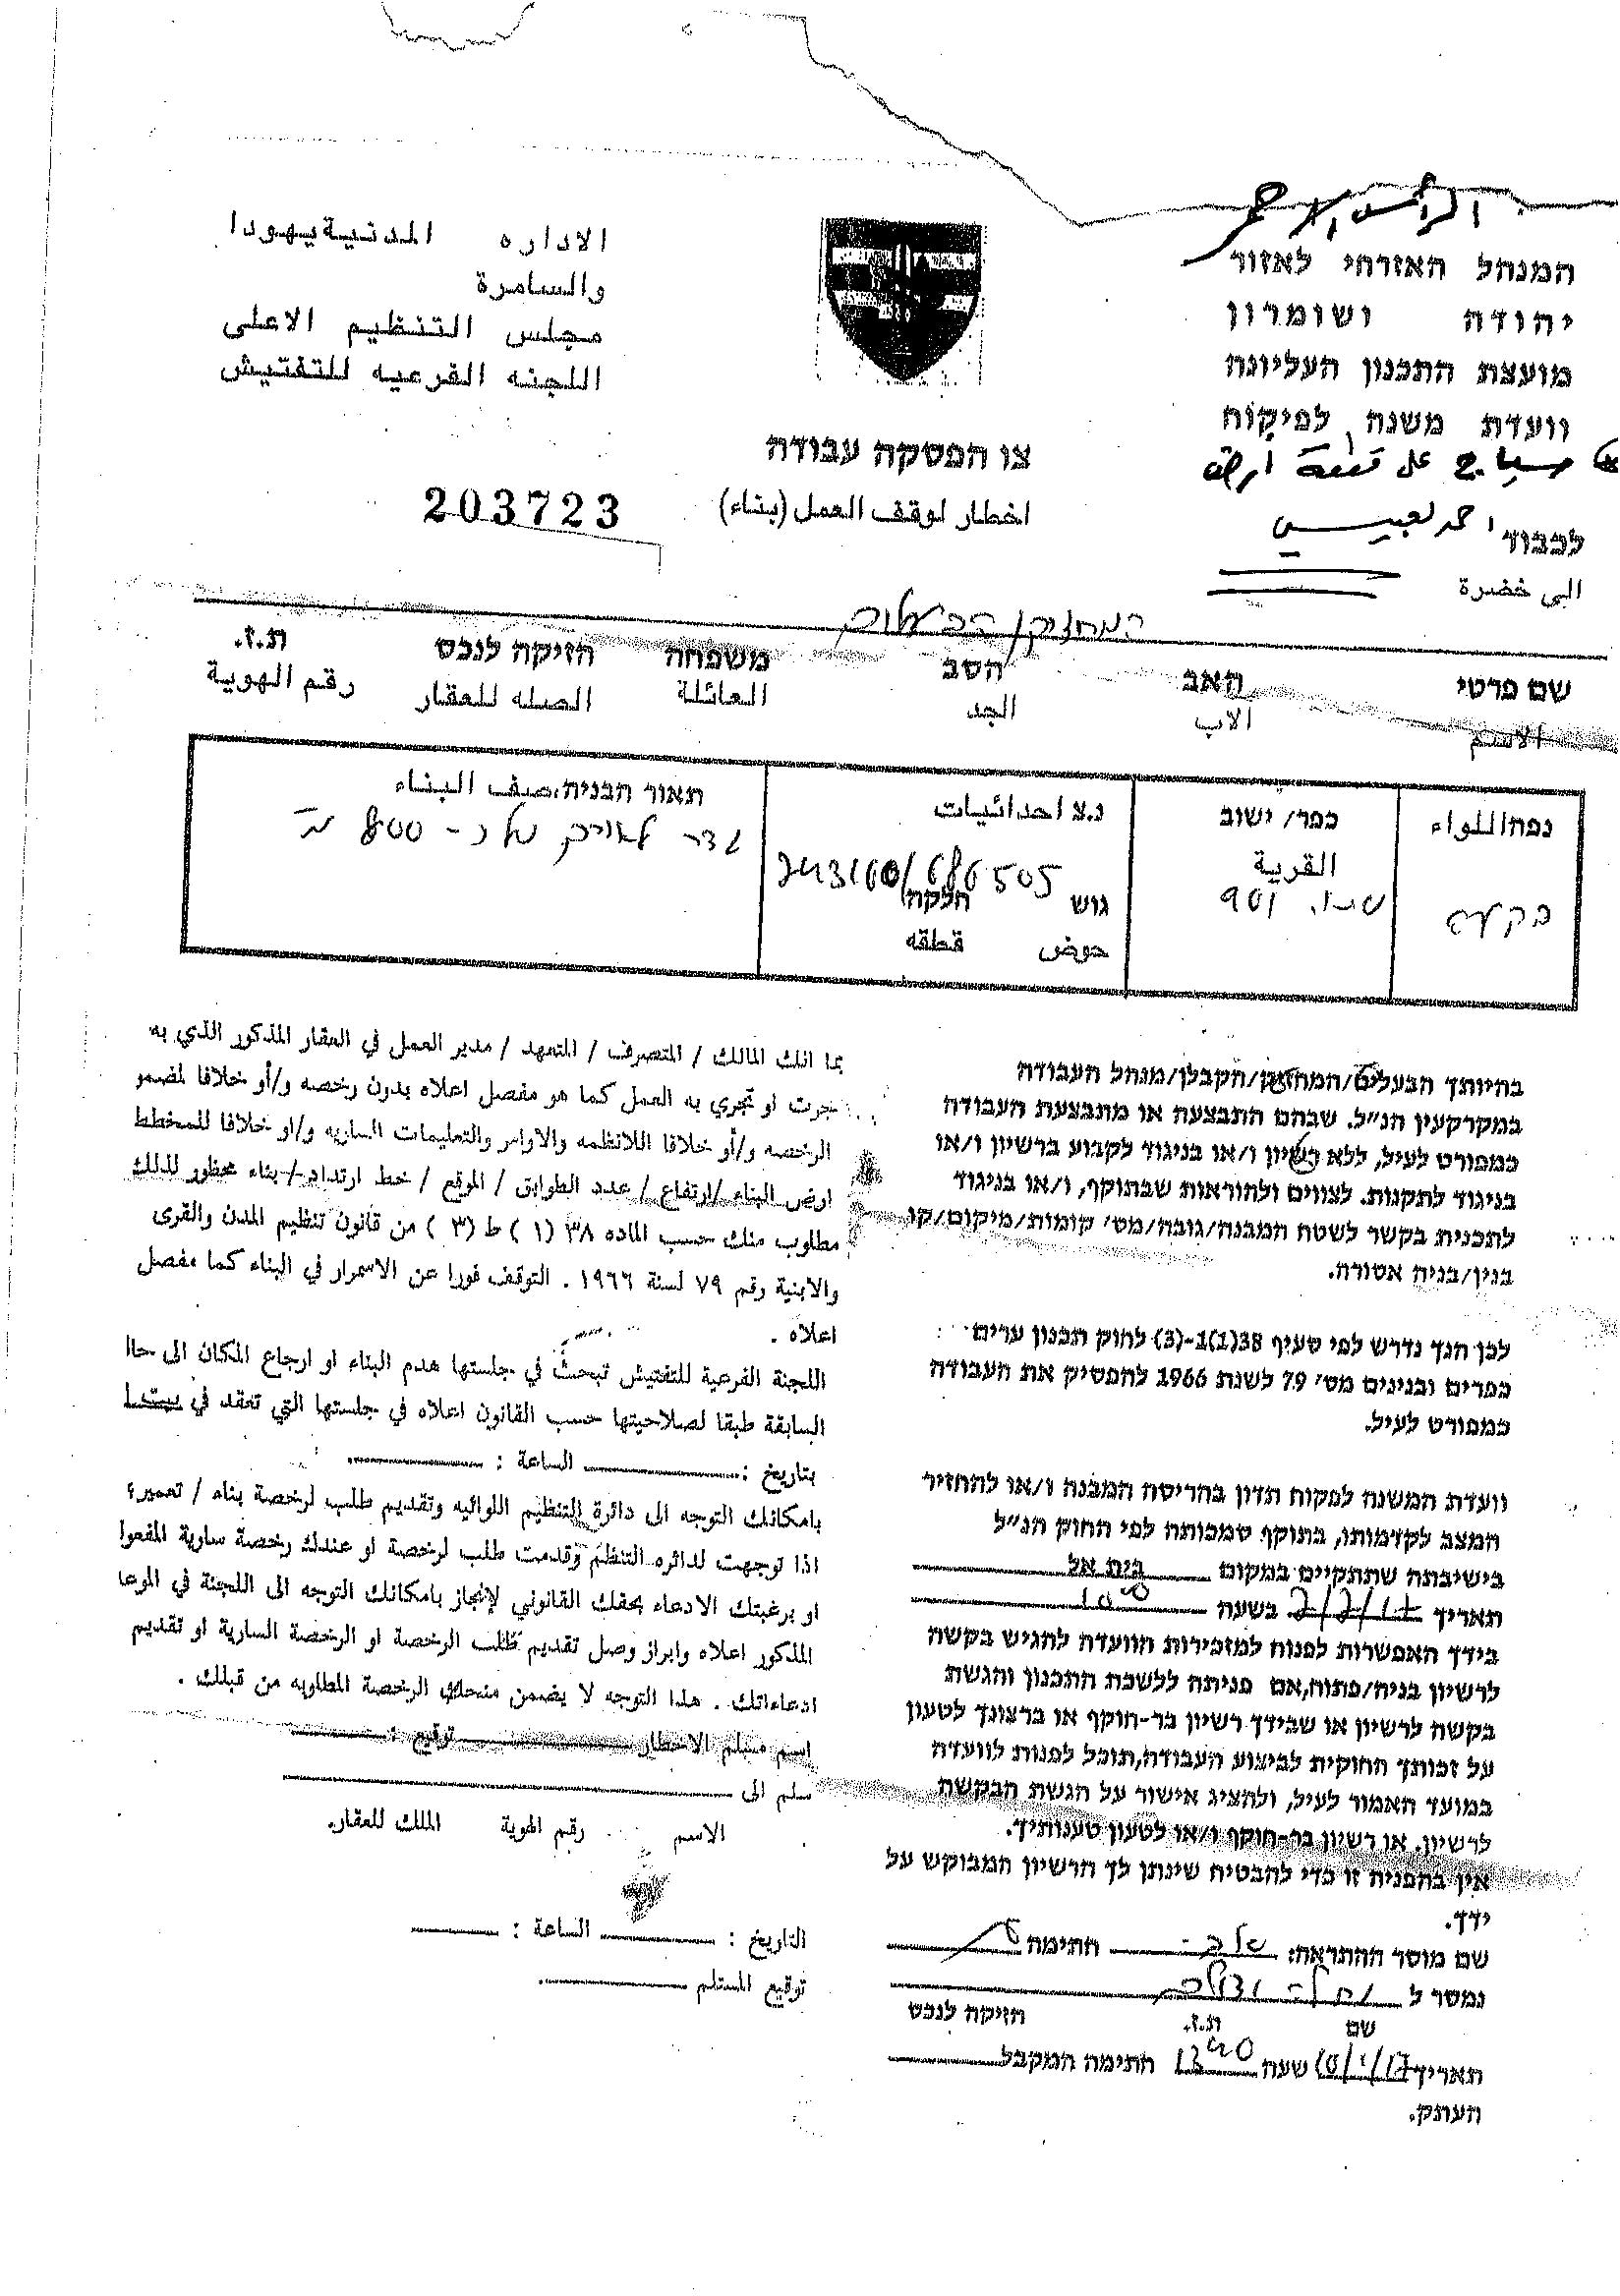 המנהל האזרחי לאזור
יהודה ושומרון
מועצת התכנון העליונה
וועדת משנה לפיקוח
الاداره المدنية يهودا
والسامرة
مجلس التنظيم الاعلى
اللجنه الفرعيه للتفتيش
צו הפסקה עבודה
اخطار لوقف العمل (بناء)
203723
سياج على قطعة ارض
לכבוד احمد
الى خضرة
המחזיק
שם פרטי האב הסב משפחה חזיקה לנכס ת.ז.
الاسم الاب الجد العائلة الصله للعقار رقم الهوية
נפה اللواء
בקעה
כפר/ ישוב
القرية
נ.צ احداثيات
243160/686505
גוש חלקה
حوض قطقه
תאור הבניה، صيف البناء
גדר לאורך של כ- 800 מ'
בהיותך הבעלים/המחזיק/הקבלן/מנהל העבודה
במקרקעין הנ"ל. שבהם התבצעה או מתבצעת העבודה
כמפורט לעיל, ללא רשיון ו/או בניגוד לקבוע ברשיון ו/או
בניגוד לתקנות. לצווים ולהוראות שבתוקף, ו/או בניגוד
לתכנית בקשר לשטח המבנה/גובה/מס' קומות/מיקום/קו
בנין/בניה אסורה.
לכן הנך נדרש לפי סעיף 38(1)1-(3) לחוק תכנון ערים
כפרים ובנינים מס' 79 לשנת 1966 להפסיק את העבודה
כמפורט לעיל.
וועדת המשנה לפקוח תדון בהריסה המבנה ו/או להחזיר
המצב לקדמותו, בתוקף סמכותה לפי החוק הנ"ל
בישיבתה שתתקיים במקום בית אל
תאריך 2/2/17 בשעה 10 00
בידך האפשרות לפנות למזכירות הוועדה להגיש בקשה
לרשיון בניה/פתוח,אם פניתה ללשכת התכנון והגשת
בקשה לרשיון או שבידך רשיון בר-חוקף או ברצונך לטעון
על זכותך החוקית לביצוע העבודה,תוכל לפנות לוועדה
במועד האמור לעיל, ולהציג אישור על הגשת הבקשה
לרשיון. או רשיון בר-חוקף ו/או לטעון טענותיך.
אין בהפניה זו כדי להבטיח שינתן לך הרשיון המבוקש על
ידך.
שם מוסר ההתראה: חתימה
נמסר ל
שם ת.ז. חזיקה לנכס
תאריך 10/1/17 שעה 13 40 חתימה המקבל
העתק.
بما انك المالك / المتصرف / المتعهد / مدير العمل في العقار المذكور الذي به
جرت او تجري به العمل كما هو مفصل اعلاه بدون رخصه و/أو خلافا لمضمو
الرخصه و/أو خلافا اللانظمه والاوامر والتعليمات الساريه و/او خلافا للمخطط
ارض البناء /ارتفاع / عدد الطوابق / الموقع / خط ارتداد / بناء محظور لذلك
مطلوب منك حسب الماده ٣٨ (١ ) ط (٣ ) من قانون تنظيم المدن والقرى
والابنية رقم ٧٩ لسنة ١٩٦٦ . التوقف فورا عن الاسمرار في البناء كما مفصل
اعلاه .
اللجنة الفرعية للتفتيش تبحث في جلستها هدم البناء او ارجاع المكان الى حاا
السابقة طبقا لصلاحيتها حسب القانون اعلاه في جلستها التي تعقد في
بتاريخ : الساعة :
بامكانك التوجه الى دائرة التنظيم اللوائيه وتقديم طلب لرخصة بناء / تعمير؛
اذا توجهت لدائره التنظم وقدمت طلب لرخصة او عندك رخصة سارية المفعوا
او برغبتك الادعاء بحقك القانوني لإنجاز بامكانك التوجه الى اللجنة في الموعا
المذكور اعلاه وابراز وصل تقديم طلب الرخصة او الرخصة السارية او تقديم
ادعاءاتك . هذا التوجه لا يضمن منحك الرخصة المطلوبه من قبلك .
اسم مسلم الاخطار توقيع :
سلم الى
الاسم رقم الهوية الملك للعقار.
التاريخ : الساعة :
توقيع المستلم